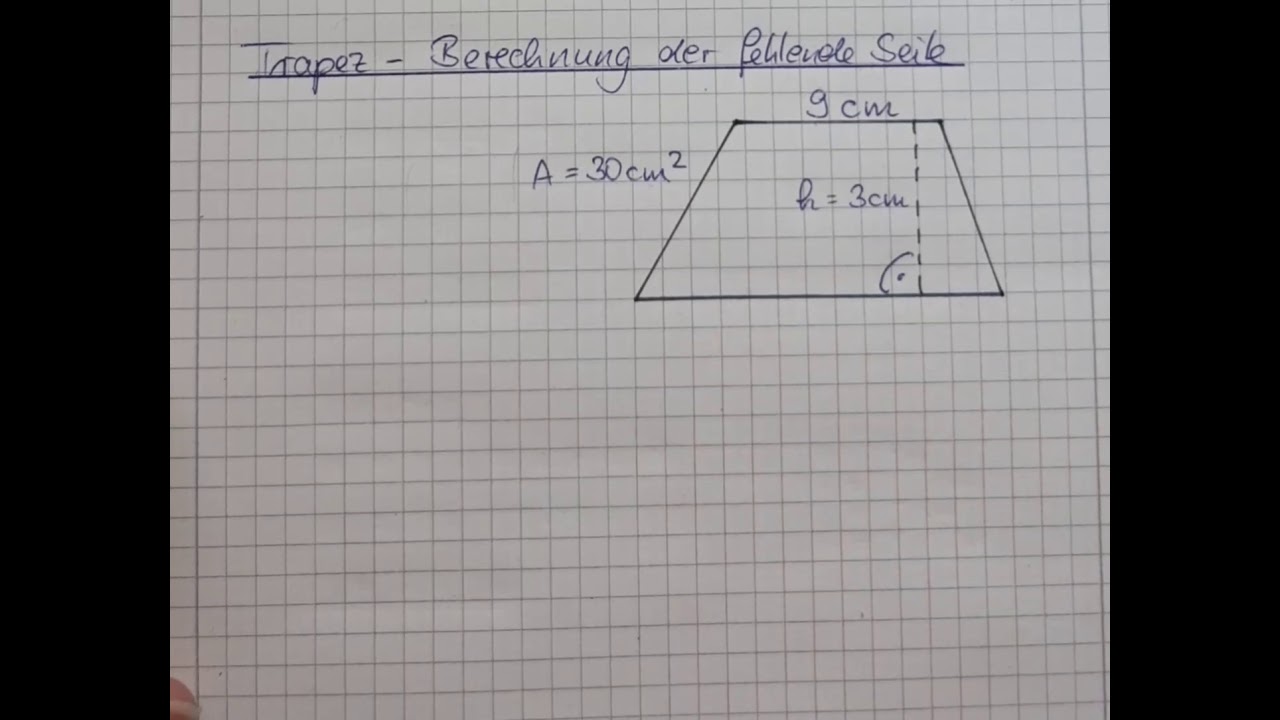 Trapez - Berechnung der fehlende Seite
9 cm
A = 30 cm²
h = 3 cm